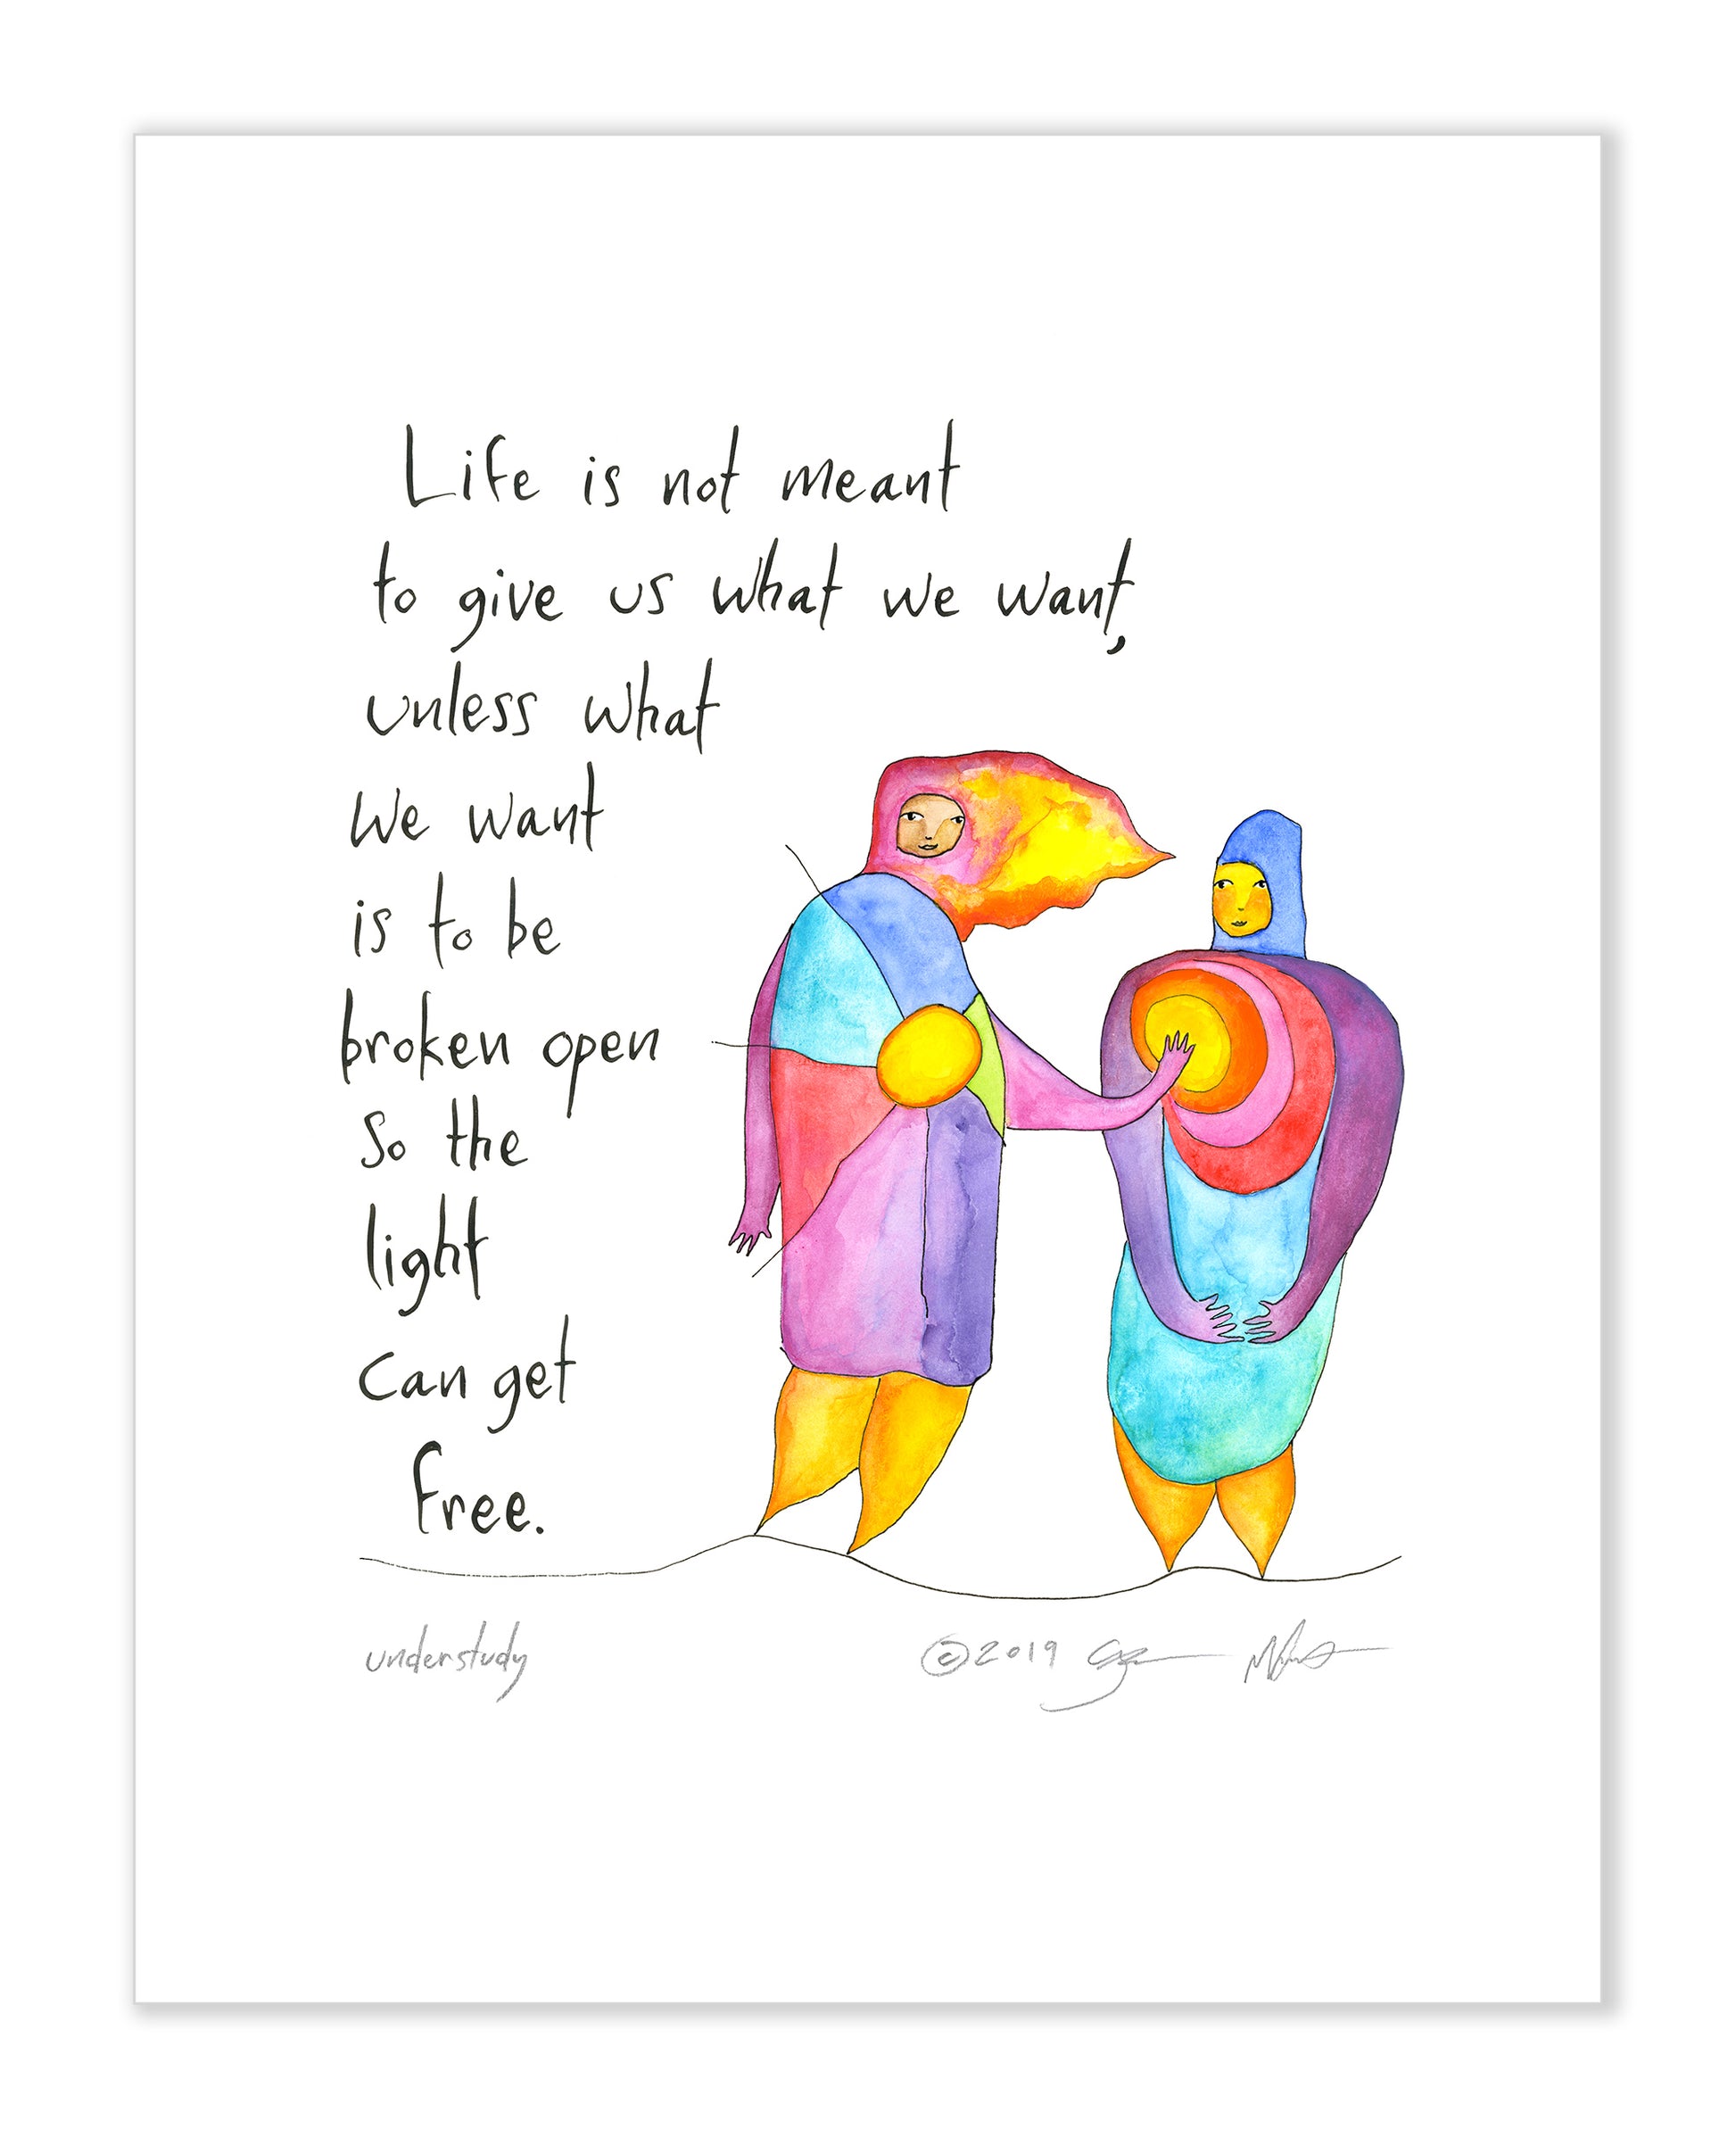 Life is not meant
to give us what we want,
unless what
we want
is to be
broken open
so the
light
can get
free.
understudy
©2019